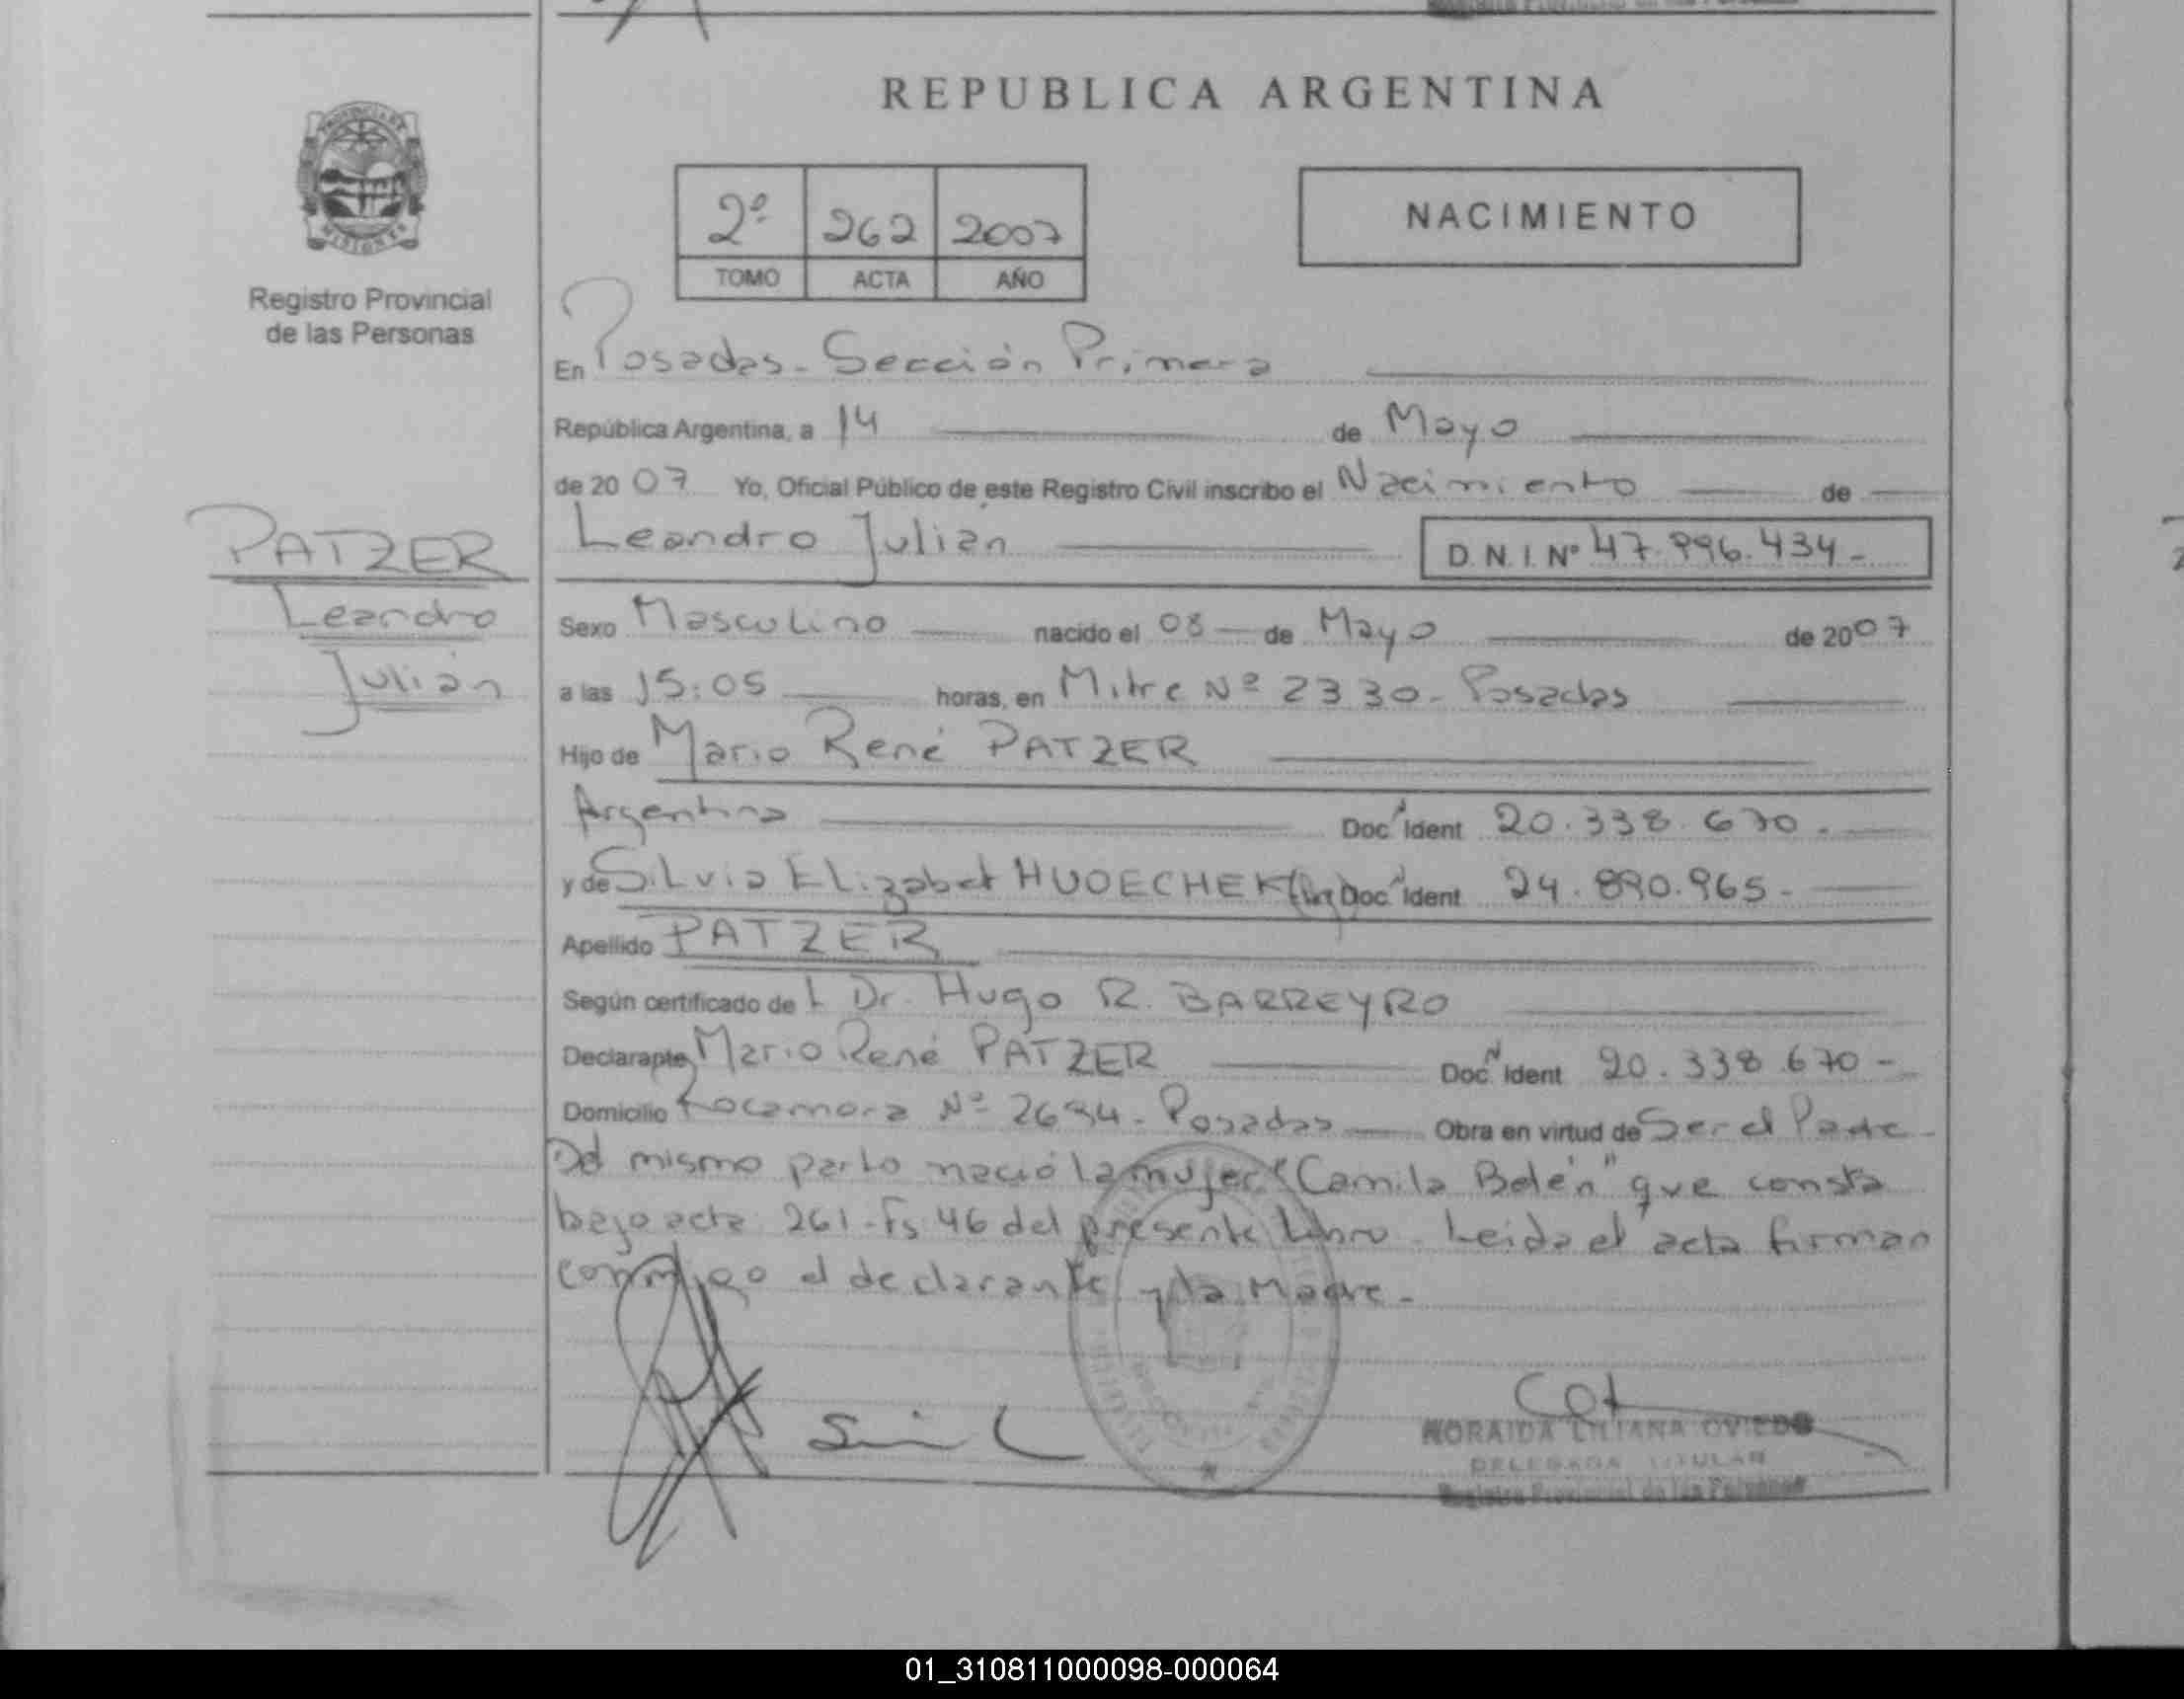 REPUBLICA ARGENTINA
PROVINCIA DE
MISIONES
Registro Provincial
de las Personas
2º 262 2007
TOMO ACTA AÑO
NACIMIENTO
En Posadas - Sección Primera
República Argentina, a 14 de Mayo
de 20 07 Yo, Oficial Público de este Registro Civil inscribo el Nacimiento de
PATZER
Leandro
Julián
Leandro Julián D.N.I. Nº 47.996.434-
Sexo Masculino nacido el 08 de Mayo de 2007
a las 15:05 horas, en Mitre Nº 2330 - Posadas
Hijo de Mario René PATZER
Argentina Doc Ident 20.338.670.-
y de Silvia Elizabet HUOECHEK (Arg) Doc Ident 24.890.965-
Apellido PATZER
Según certificado de L Dr. Hugo R. BARREYRO
Declarante Mario René PATZER Doc Ident 20.338.670-
Domicilio Rocamora Nº 2694 - Posadas Obra en virtud de Ser el Padre
Del mismo parto nació la mujer "Camila Belén" que consta
bajo acta 261 - Fs 46 del presente Libro - Leida el acta firman
conmigo el declarante y la Madre -
NORAIDA LILIANA OVIEDO
DELEGADA TITULAR
Registro Provincial de las Personas
01_310811000098-000064